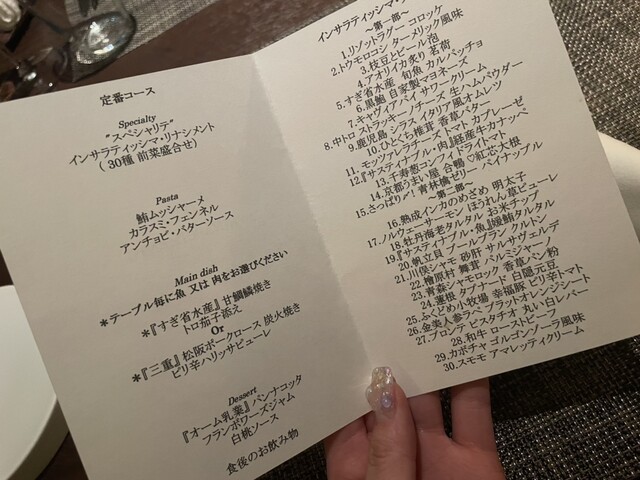 定番コース
Specialty
"スペシャリテ"
インサラティッシマ・リナシメント
( 30種 前菜盛合せ)
Pasta
鮪ムッシャーメ
カラスミ・フェンネル
アンチョビ・バターソース
Main dish
＊テーブル毎に魚 又は 肉をお選びください
＊『すぎ省水産』甘鯛鱗焼き
トロ茄子添え
Or
＊『三重』松阪ポークロース 炭火焼き
ピリ辛ハリッサピューレ
Dessert
『オーム乳業』パンナコッタ
フランボワーズジャム
白桃ソース
食後のお飲み物
インサラティッシマ・
～第一部～
1.リゾットラグー コロッケ
2.トウモロコシ ターメリック風味
3.枝豆とビール 泡
4.アオリイカ炙り 茗荷
5.すぎ省水産 旬魚 カルパッチョ
6.黒鮑 自家製マヨネーズ
7.キャヴィア パン サワークリーム
8.中トロ ストラッキーノチーズ 生ハムパウダー
9.鹿児島 シラス イタリア風オムレツ
10.ひとくち椎茸 香草バター
11.モッツァレラチーズ トマト カプレーゼ
12.『サステイナブル・肉』経産牛カナッペ
13.千寿葱コンフィ ドライトマト
14.京都うまい屋 合鴨 ♡紅芯大根
15.さっぱり♪ 青林檎ゼリー パイナップル
～第二部～
16.熟成インカのめざめ 明太子
17.ノルウェーサーモン ほうれん草ピューレ
18.牡丹海老タルタル お米チップ
19.『サステイナブル・魚』縞鮪タルタル
20.帆立貝 ブールブラン クルトン
21.川俣シャモ 砂肝 サルサヴェルデ
22.檜原村 舞茸 パルミジャーノ
23.青森シャモロック 香草パン粉
24.蓮根 タプナード 白隠元豆
25.ふくどめ小牧場 幸福豚 ピリ辛トマト
26.金美人参ラペ ブラッドオレンジシート
27.ブロンテ ピスタチオ 丸い白レバー
28.和牛 ローストビーフ
29.カボチャ ゴルゴンゾーラ風味
30.スモモ アマレッティクリーム